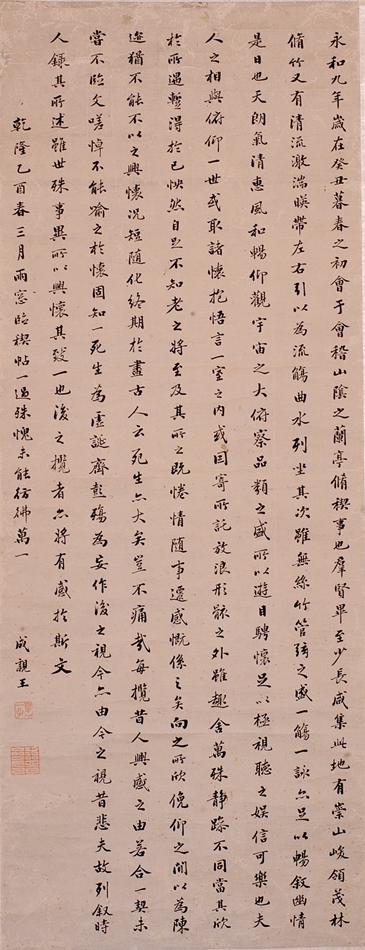 永和九年歲在癸丑暮春之初會于會稽山陰之蘭亭脩禊事也羣賢畢至少長咸集此地有崇山峻領茂林
脩竹又有清流激湍暎帶左右引以為流觴曲水列坐其次雖無絲竹管弦之盛一觴一詠亦足以暢敘幽情
是日也天朗氣清惠風和暢仰觀宇宙之大俯察品類之盛所以遊目騁懷足以極視聽之娛信可樂也夫
人之相與俯仰一世或取諸懷抱悟言一室之内或因寄所託放浪形骸之外雖趣舍萬殊靜躁不同當其欣
於所遇暫得於己怏然自足不知老之將至及其所之既惓情隨事遷感慨係之矣向之所欣俛仰之閒以為陳
迹猶不能不以之興懷況短隨化終期於盡古人云死生亦大矣豈不痛哉每攬昔人興感之由若合一契未
嘗不臨文嗟悼不能喻之於懷固知一死生為虛誕齊彭殤為妄作後之視今亦由今之視昔悲夫故列敘時
人錄其所述雖世殊事異所以興懷其致一也後之攬者亦將有感於斯文
乾隆乙酉春三月雨窓臨禊帖一過殊愧未能彷彿萬一
成親王